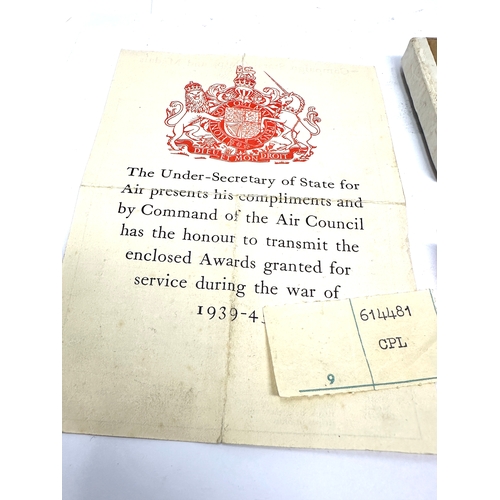 DIEU ET MON DROIT
The Under-Secretary of State for
Air presents his compliments and
by Command of the Air Council
has the honour to transmit the
enclosed Awards granted for
service during the war of
1939-4
614481
CPL
9